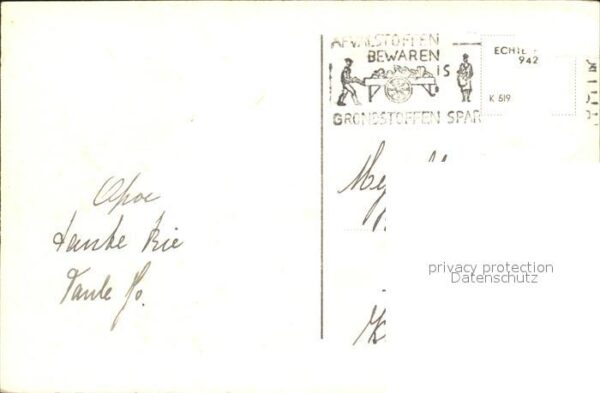 AFVALSTOFFEN
BEWAREN
IS
GRONDSTOFFEN SPAR
ECHTE
942
K 619
Opoe
Tante Rie
Tante Jo.
privacy protection
Datenschutz